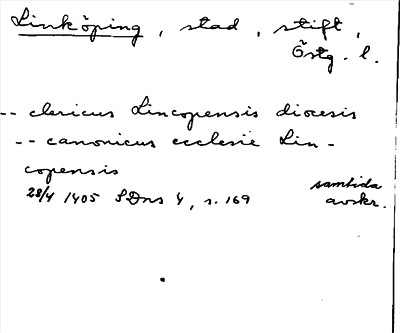 Linköping, stad, stift,
Östg. l.
-- clericus Lincopensis diocesis
-- canonicus ecclesie Lin-
copensis
28/4 1405 SDns 4, s. 169 samtida
avskr.